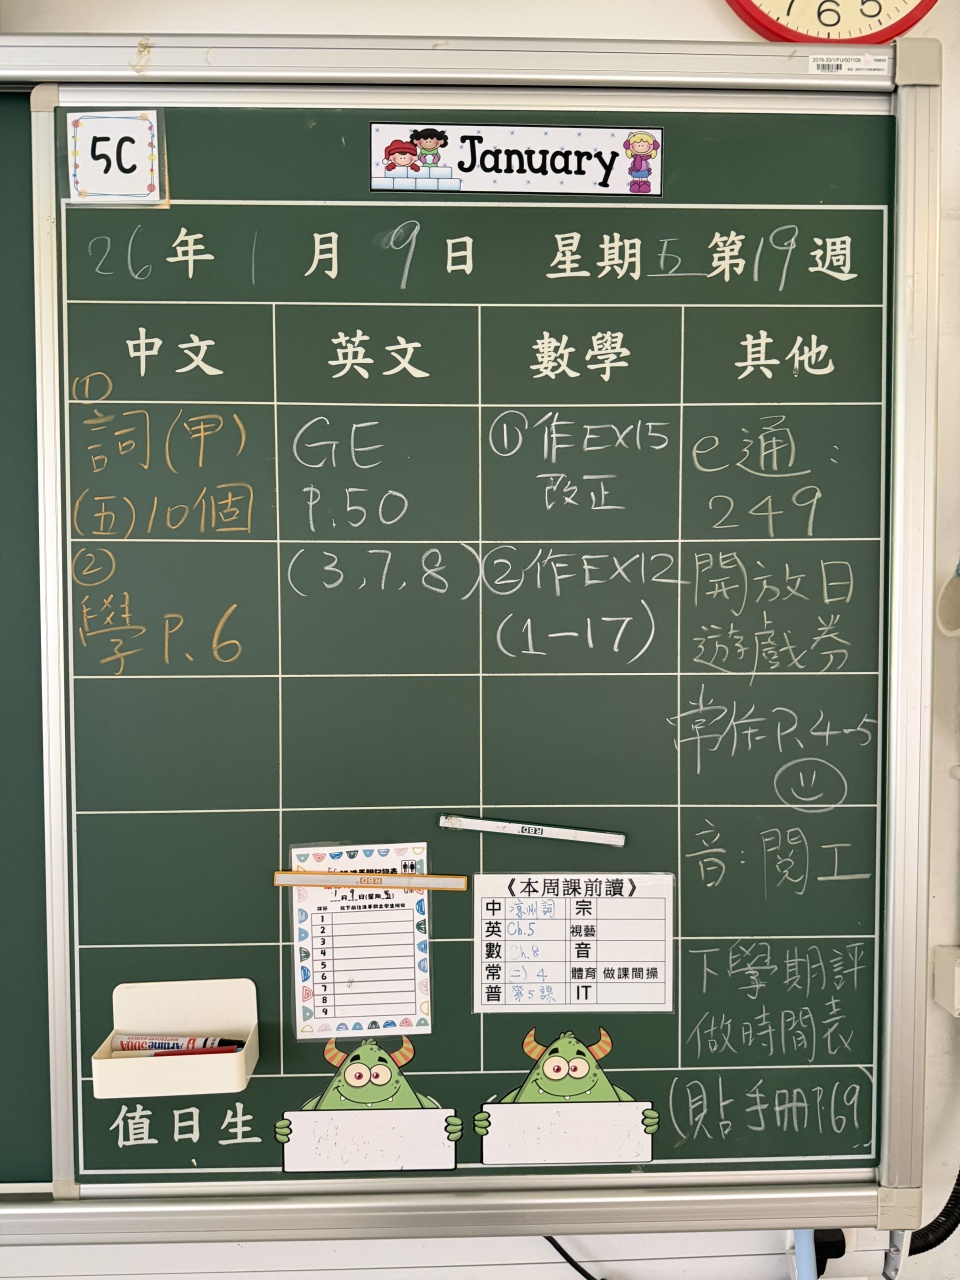 2019-20/1/FU/001109
5C
January
26年1月9日 星期五 第19週
中文 英文 數學 其他
①
詞(甲)
(五)10個
②
學P.6
GE
P.50
(3,7,8)
①作EX15
改正
②作EX12
(1-17)
e通:
249
開放日
遊戲券
常作P.4-5
音:閱工
下學期評
做時間表
(貼手冊P.69)
RBD
RBD
1月9日(星期五)
1
2
3
4
5
6
7
8
9
《本周課前讀》
中 宗
英 Ch.5 視藝
數 Ch.8 音
常 二) 4 體育 做課間操
普 第5課 IT
Artline 500A
值日生